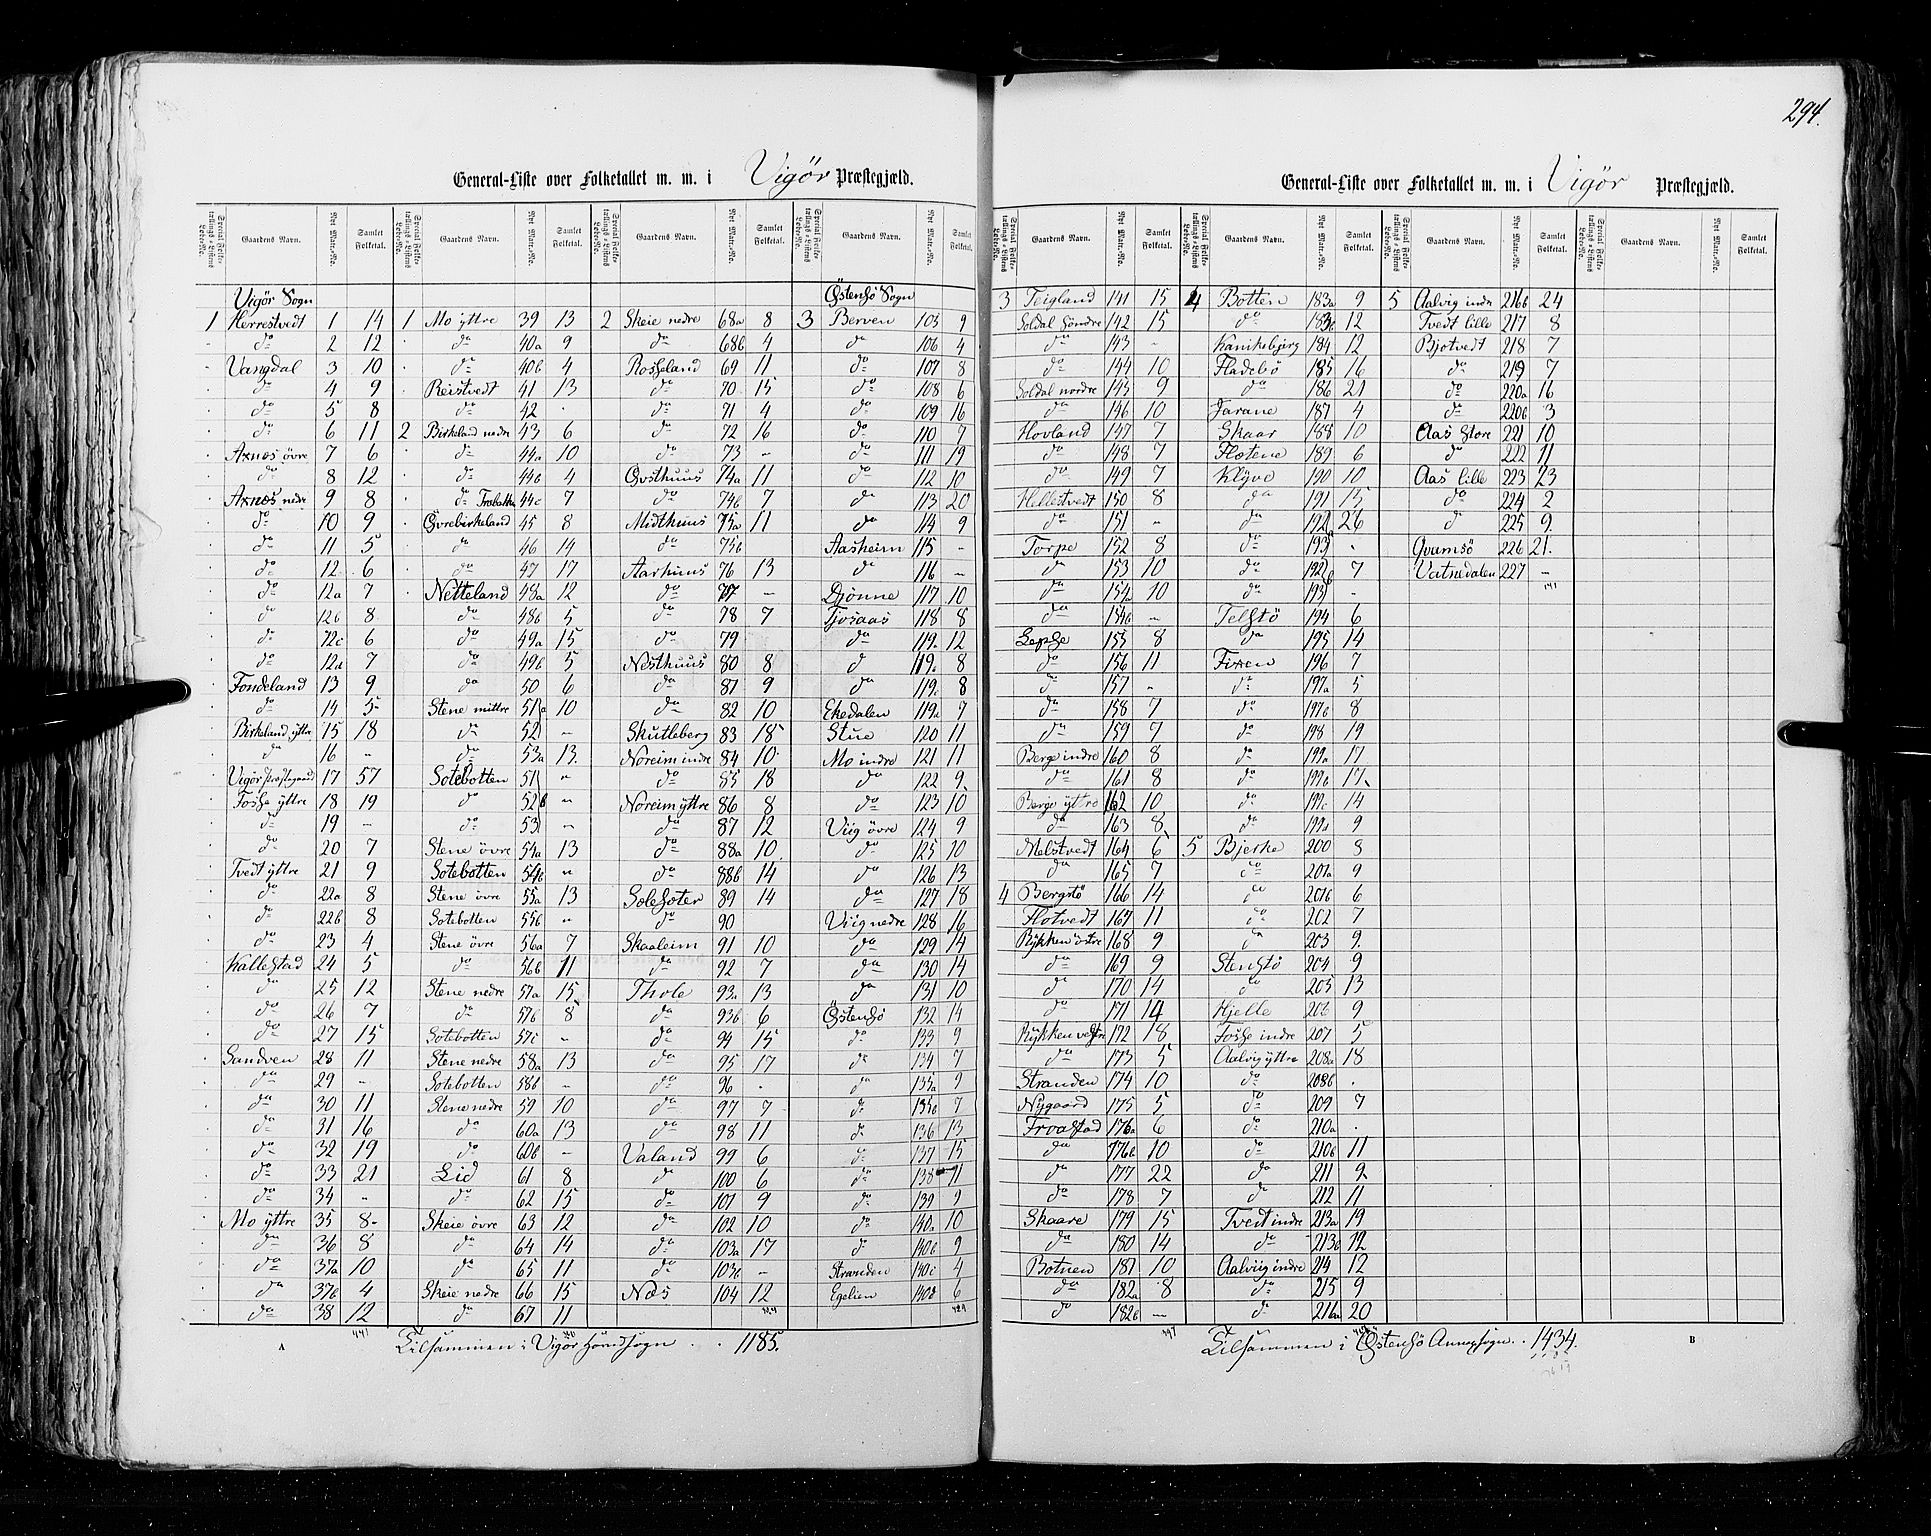 294.
General-Liste over Folketallet m. m. i Vigör Præstegjæld.
Gaardens Navn. Nyt Matr.-No. Samlet Folketal.
Vigör Sogn
1 Herrestvedt 1 14
do 2 12
Vangdal 3 10
do 4 9
do 5 8
do 6 11
Axnæs övre 7 6
do 8 12
Axnæs nedre 9 8
do 10 9
do 11 5
do 12 6
do 12a 7
do 12b 8
do 12c 6
do 12d 7
Fondeland 13 9
do 14 5
Birkeland yttre 15 18
do 16 -
Vigör Præstegaard 17 57
Fosse yttre 18 19
do 19 -
do 20 7
Tvedt yttre 21 9
do 22a 8
do 22b 8
do 23 4
Kallestad 24 5
do 25 12
do 26 7
do 27 15
Sandven 28 11
do 29 -
do 30 11
do 31 16
do 32 19
do 33 21
do 34 -
Mo yttre 35 8
do 36 8
do 37a 10
do 37b 4
do 38 12
441
1 Mo yttre 39 13
do 40a 9
do 40b 4
Reistvedt 41 13
do 42 -
2 Birkeland nedre 43 6
do 44a 10
do 44b 4
do 44c 7
Övrebirkeland 45 8
do 46 14
do 47 17
Netteland 48a 12
do 48b 5
do 49a 15
do 49b 5
do 50 6
Stene mittre 51a 10
do 52 -
do 53a 13
Sotebotten 51 -
do 52b -
do 53 -
Stene övre 54a 13
Sotebotten 54b -
Stene övre 55a 13
Sotebotten 55b -
Stene övre 56a 7
do 56b 11
Stene nedre 57a 15
do 57b 8
Sotebotten 57c -
Stene nedre 58a 13
Sotebotten 58b -
Stene nedre 59 10
do 60a 13
do 60b -
Lid 61 8
do 62 15
Skeie övre 63 12
do 64 14
do 65 11
Skeie nedre 66 15
do 67 11
2 Skeie nedre 68a 8
do 68b 4
Rosseland 69 11
do 70 15
do 71 4
do 72 16
do 73 -
Øvsthuus 74a 11
do 74b 7
Midthuus 75a 11
do 75b
Aarhuus 76 13
do 77 -
do 78 7
do 79
Nesthuus 80 8
do 81 9
do 82 10
Skutleberg 83 18
Noreim indre 84 10
do 85 18
Noreim yttre 86 8
do 87 12
do 88a 10
do 88b 14
Solesæter 89 14
do 90
Skaaleim 91 10
do 92 7
Thole 93a 13
do 93b 6
do 94 15
do 95 17
do 96 -
do 97 7
do 98 11
Valand 99 6
do 100 6
do 101 9
do 102 10
do 103a 17
do 103b -
Næs 104 12
Östensö Sogn
3 Berven 105 9
do 106 4
do 107 8
do 108 6
do 109 16
do 110 7
do 111 19
do 112 10
do 113 20
do 114 9
Aasheim 115 -
do 116 -
Djönne 117 10
Tjosaas 118 8
do 119a 12
do 119b 8
do 119c 8
Ekedalen 119d 7
Stue 120 11
Mo indre 121 11
do 122 9
do 123 10
Viig övre 124 9
do 125 10
do 126 13
do 127 18
Viig nedre 128 16
do 129 14
do 130 14
do 131 10
Östensö 132 14
do 133 9
do 134 7
do 135a 9
do 135b 7
do 136 13
do 137 15
do 138 11
do 139 9
do 140a 10
do 140b 9
Stranden 140c 4
Egelien 140d 6
429
Tilsammen i Vigör Hovedsogn . . 1185.
A
General-Liste over Folketallet m. m. i Vigör Præstegjæld.
Gaardens Navn. Nyt Matr.-No. Samlet Folketal.
3 Teigland 141 15
Soldal söndre 142 15
do 143 -
do 144 10
Soldal nordre 145 9
do 146 10
Hovland 147 7
do 148 7
do 149 7
Hellestvedt 150 8
do 151 -
Torpe 152 8
do 153 10
do 154a 10
do 154b -
Lepse 155 8
do 156 11
do 157 -
do 158 7
do 159 7
Berge indre 160 8
do 161 8
Berge yttre 162 10
do 163 8
Melstvedt 164 6
do 165 7
4 Bergstö 166 14
Flotvedt 167 11
Rykken östre 168 9
do 169 9
do 170 14
do 171 14
Rykken vestre 172 18
do 173 5
Stranden 174 10
Nygaard 175 5
Froastad 176a 6
do 176b 10
do 177 22
do 178 7
Skaare 179 15
do 180 14
Botnen 181 10
do 182a 8
do 182b -
397
4 Botten 183a 9
do 183b 12
Kanikebjerg 184 12
Fladebö 185 16
do 186 21
Jarane 187 4
Skaar 188 10
Flotene 189 6
Klyve 190 10
do 191 15
do 192 26
do 193 -
do 192b 7
do 193 -
Telstö 194 6
do 195 14
Fixen 196 7
do 197a 5
do 197b 8
do 198 19
do 199a 17
do 199b 17
do 199c 14
do 199d 9
5 Bjerke 200 8
do 201a 9
do 201b 6
do 202 7
do 203 9
Stenstö 204 9
do 205 13
Hjelle 206 9
Fosse indre 207 5
Aalvig yttre 208a 18
do 208b -
do 209 7
do 210a -
do 210b 11
do 211 9
do 212 11
Tvedt indre 213a 19
do 213b 12
Aalviig indre 214 12
do 215 9
do 216a 20
5 Aalvig indre 216b 24
Tvedt lille 217 8
Bjotvedt 218 7
do 219 7
do 220a 16
do 220b 3
Aas Store 221 10
do 222 11
Aas lille 223 23
do 224 2
do 225 9
Qvamsö 226 21
Vatnedalen 227 -
141
Tilsammen i Östensö Annexsogn . . 1434.
B